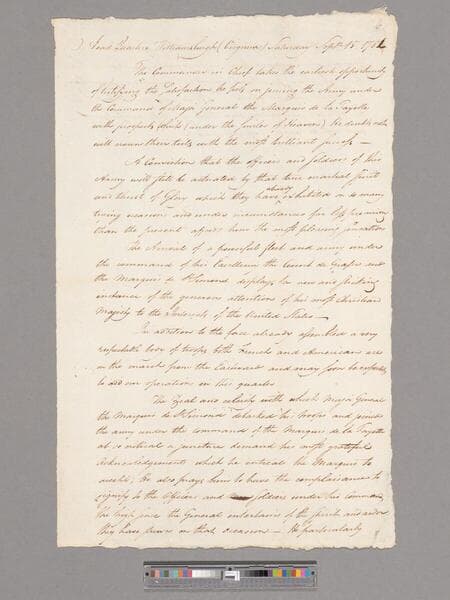 Head Quarters Williamsburgh (Virginia) Saturday Sept. 15 1781
The Commander in Chief takes the earliest opportunity
of testifying the Satisfaction he feels on joining the Army under
the Command of Major General the Marquis de la Fayette
with prospects which (under the smiles of Heaven) he doubts not
will crown their toils with the most brilliant success —
A Conviction that the officers and soldiers of this
Army will still be actuated by that true martial spirit
and thirst of Glory which they have already exhibited on so many
trying occasions and under circumstances far less promising
than the present affords him the most pleasing sensation
The Arrival of a powerful fleet and army under
the command of his Excellency the Count de Grasse and
the Marquis de St Simond displays a new and striking
instance of the generous attention of his most Christian
Majesty to the Interests of the United States —
In addition to the force already assembled a very
respectable body of troops both French and Americans are
on the march from the Eastward and may soon be expected
to aid our operations in this quarter
The Zeal and celerity with which Major General
the Marquis de St Simond debarked his troops and joined
the army under the command of the Marquis de la Fayette
at so critical a juncture demand his most grateful
Acknowledgements which he entreats the Marquis to
accept; He also prays him to have the complaisance to
signify to the Officers and soldiers under his command
the high sense the General entertains of the spirit and ardor
they have shewn on that occasion — He particularly